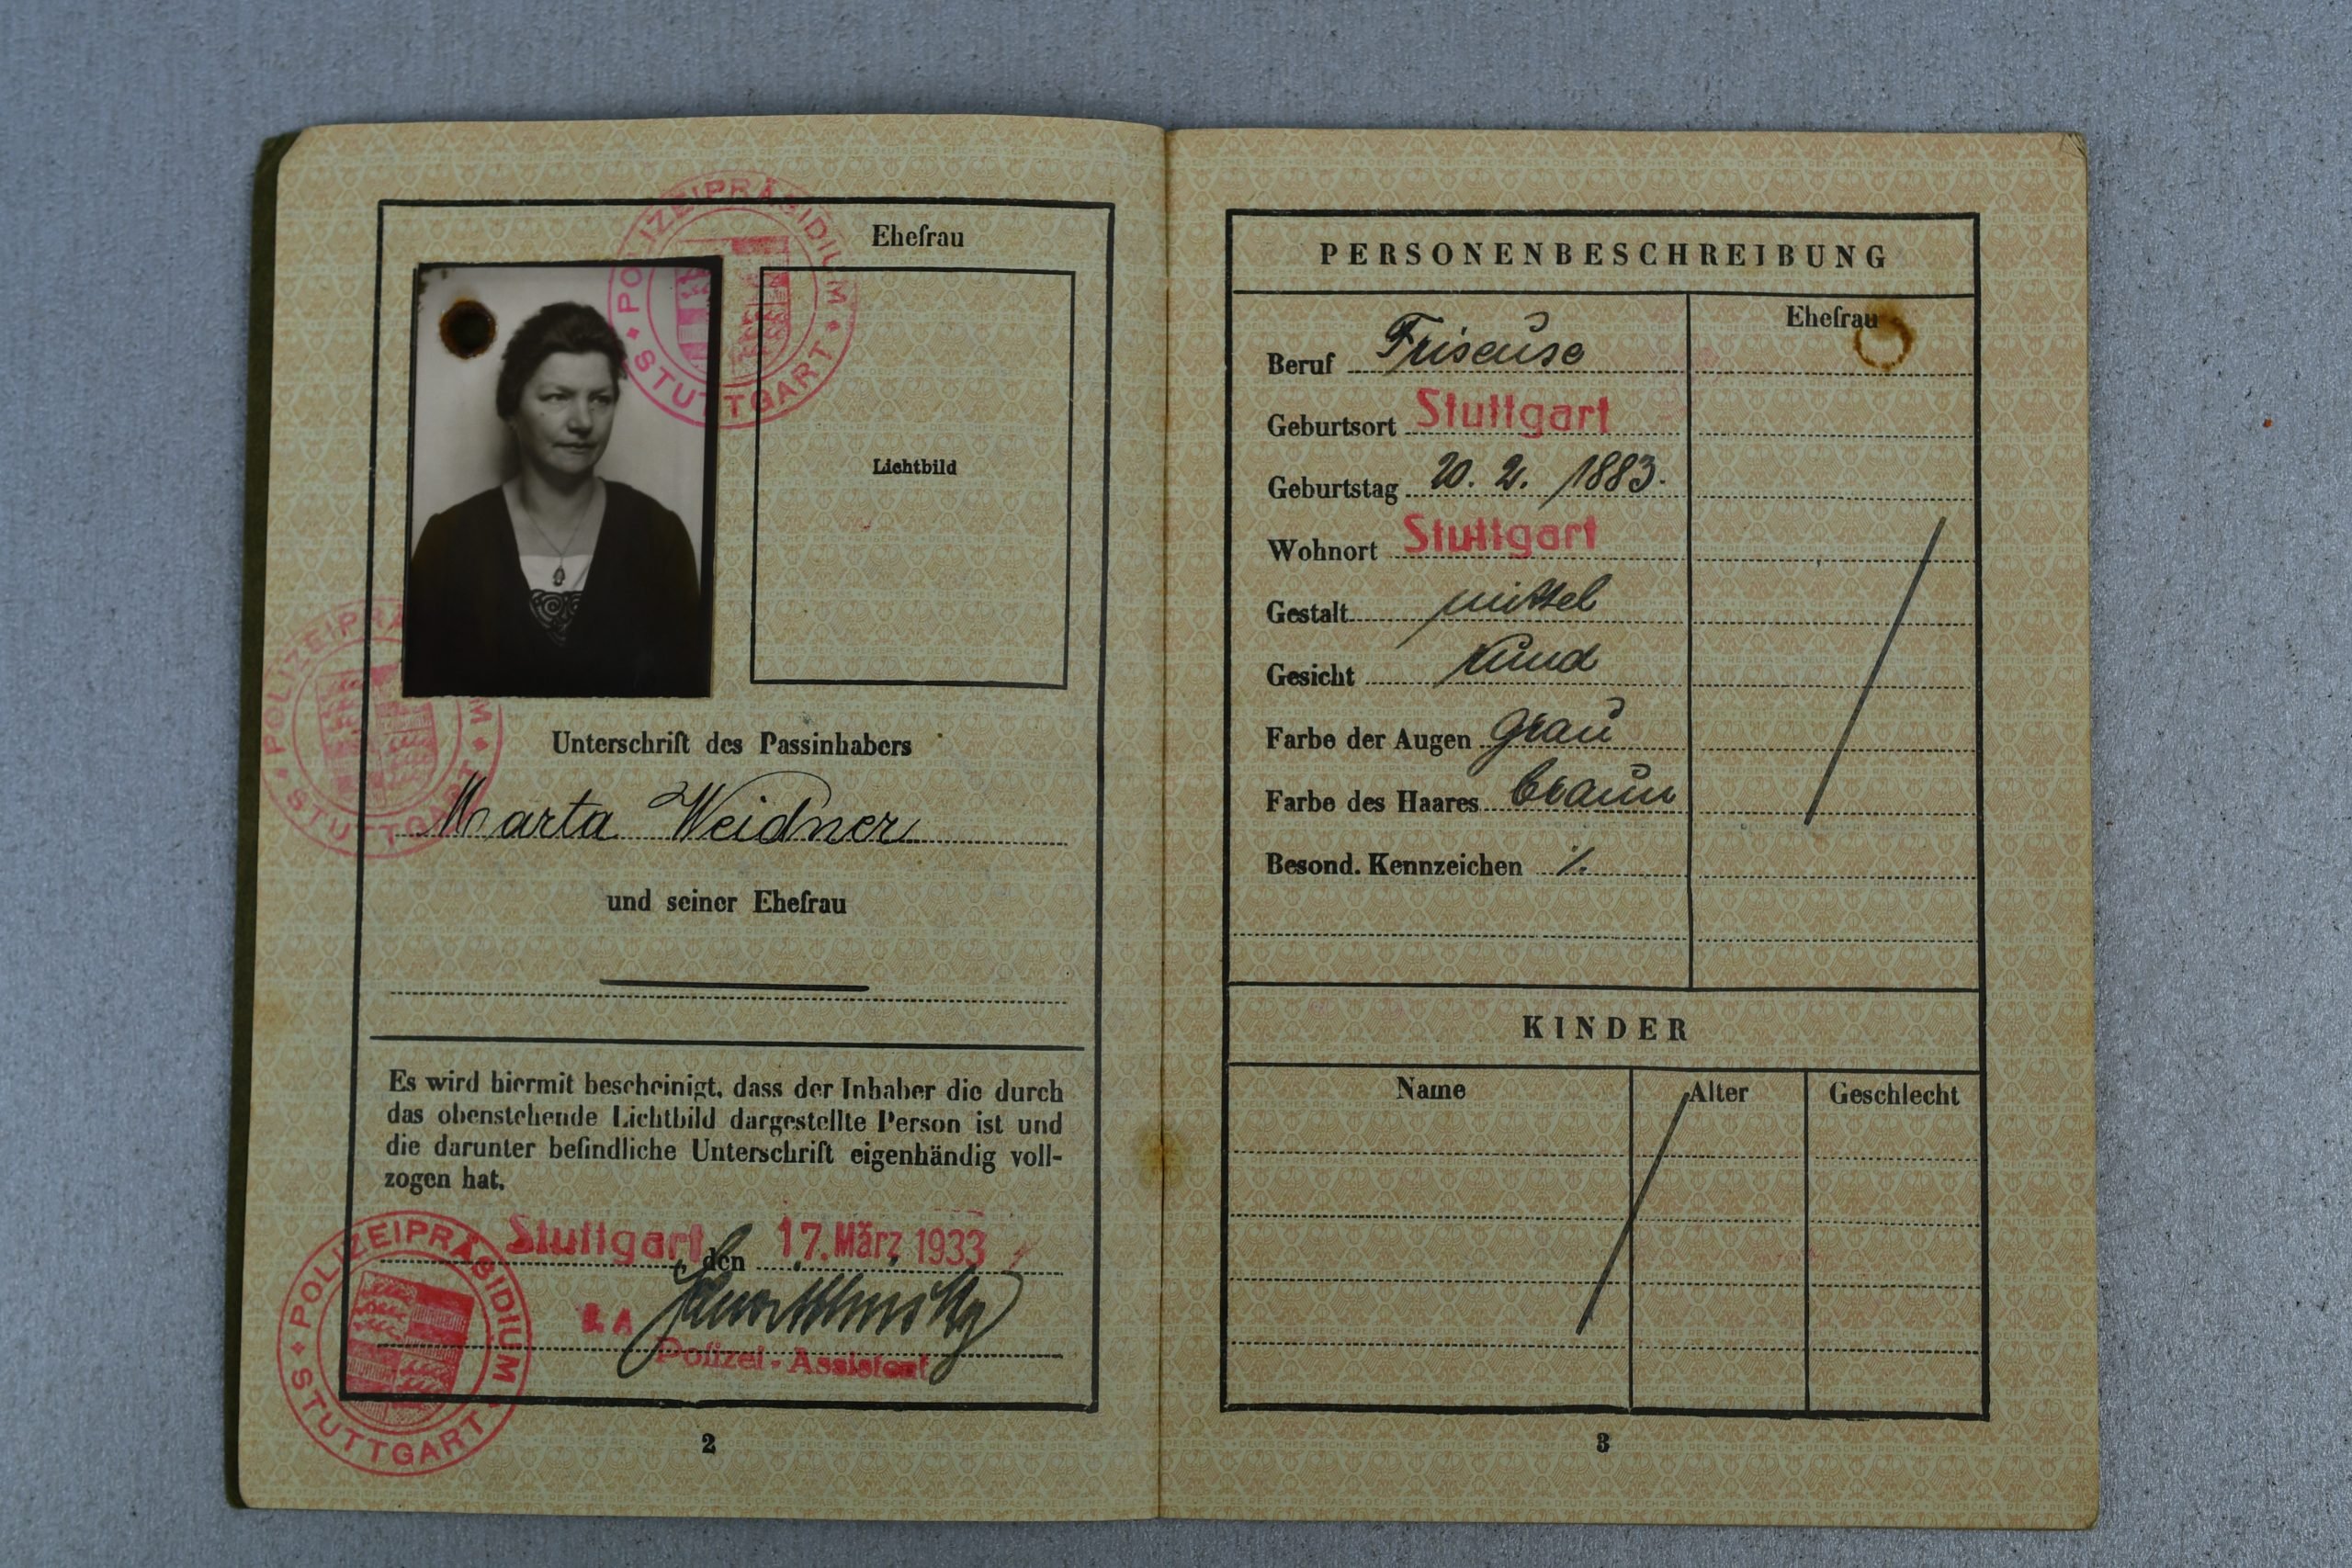 POLIZEIPRÄSIDIUM
STUTTGART
Ehefrau
Lichtbild
POLIZEIPRÄ M
STUTTGART
Unterschrift des Passinhabers
Marta Weidner
und seiner Ehefrau
Es wird hiermit bescheinigt, dass der Inhaber die durch
das obenstehende Lichtbild dargestellte Person ist und
die darunter befindliche Unterschrift eigenhändig voll-
zogen hat.
Stuttgart, den 17. März 1933
Polizei-Assistent
POLIZEIPRÄSIDIUM
STUTTGART
2
PERSONENBESCHREIBUNG
Ehefrau
Beruf Friseuse
Geburtsort Stuttgart
Geburtstag 20. 2. 1883.
Wohnort Stuttgart
Gestalt mittel
Gesicht rund
Farbe der Augen grau
Farbe des Haares braun
Besond. Kennzeichen ./.
KINDER
Name Alter Geschlecht
3